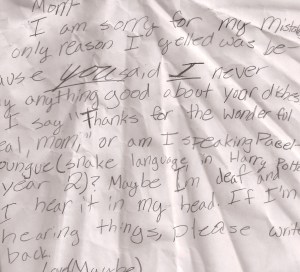 Mom
I am sorry for my mistak
only reason I yelled was be-
ause you said I never
y anything good about your dishes
I say "Thanks for the wonderful
eal, mom," or am I speaking Parsel-
oungue (snake language in Harry Potte
year 2)? Maybe I'm deaf and
I hear it in my head. If I'm
hearing things, please write
back